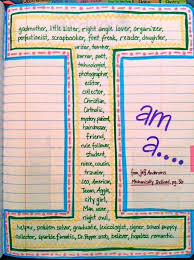 godmother, little sister, right angle lover, organizer,
perfectionist, scrapbooker, font freak, reader, daughter,
writer, teacher,
mormon, poet,
technologist,
photographer,
editor,
collector,
Christian,
Catholic,
mystery patient,
hairdresser,
friend,
rule follower,
student,
niece, cousin,
traveler,
Leo, American,
Texan, Aggie,
city girl,
Mac user,
night owl,
helper, problem solver, graduate, lexicologist, signer, school supply
collector, sparkle fanatic, Dr Pepper addict, believer, hopeless romantic.
am
a....
from Jeff Anderson's
Mechanically Inclined, pg.